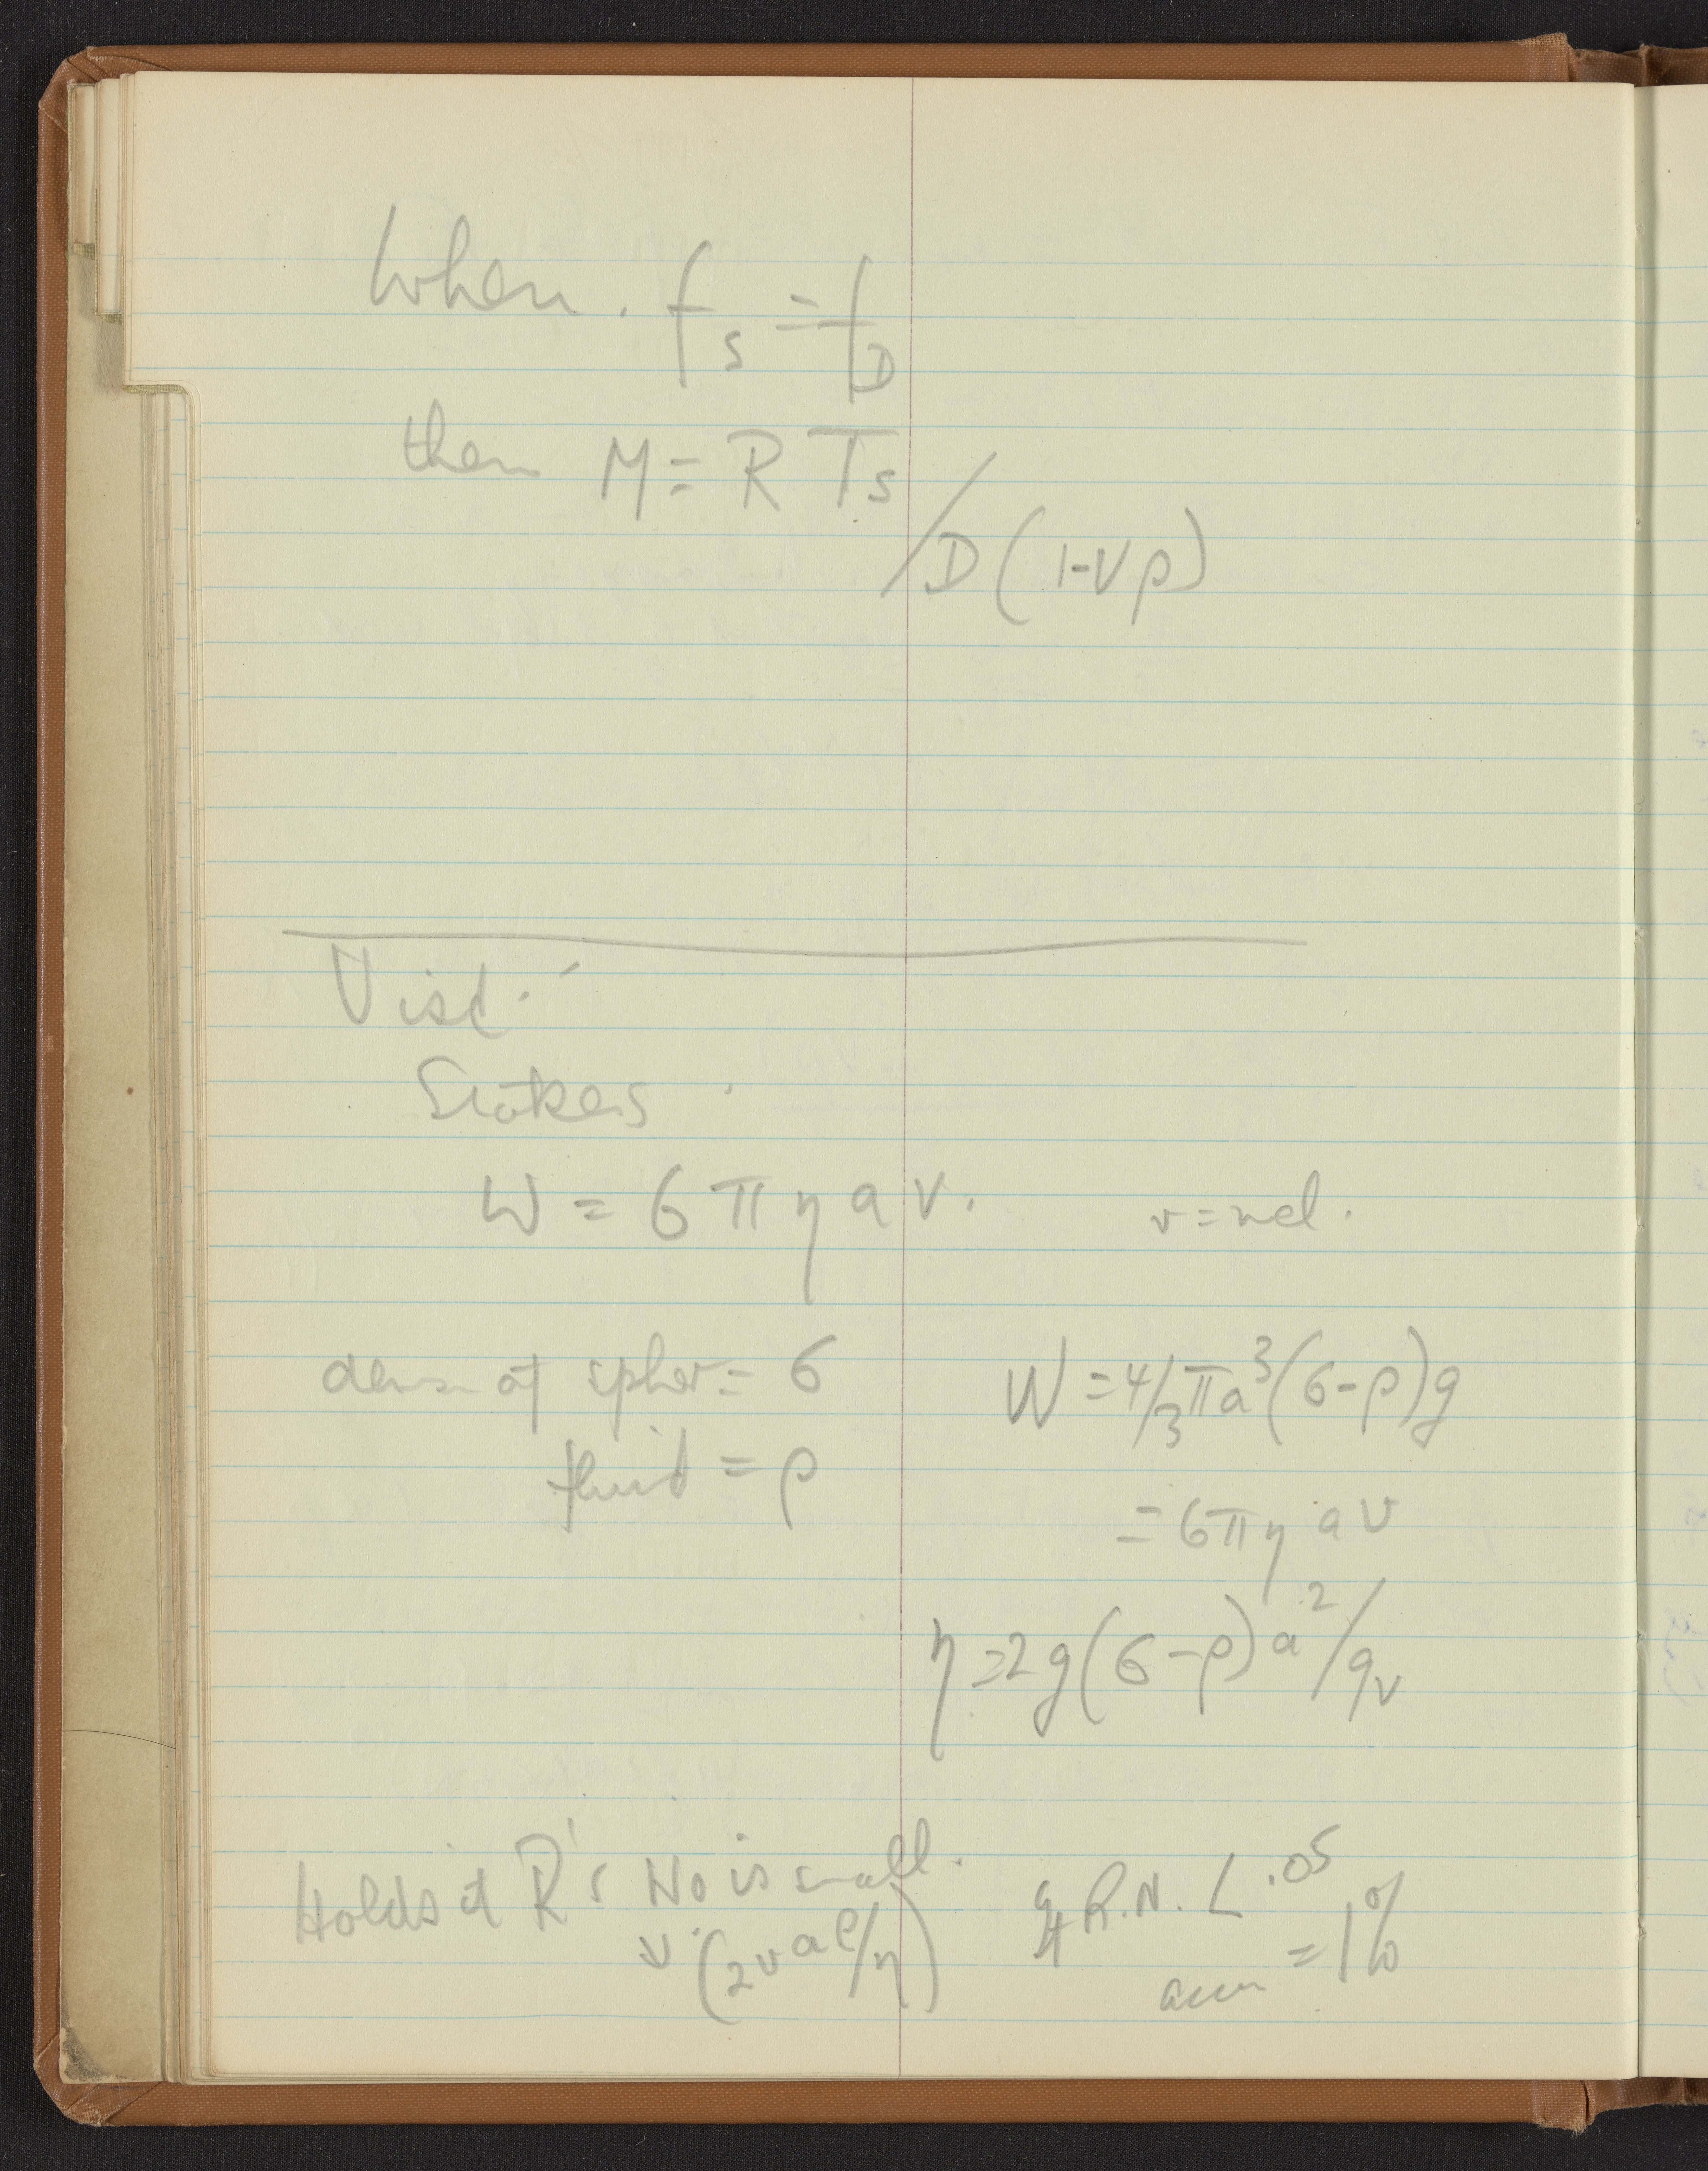 When . f_s = f_D
then M = R T s / D (1-Vρ)
Visc.
Stokes .
W = 6 π η a v. v = vel.
dens of spher = σ W = 4/3 π a³ (σ - ρ) g
fluid = ρ
= 6 π η a v
η = 2 g (σ - ρ) a² / 9v
Holds if R's No is small.
(2 v a ρ/η)
If R.N. L .05
accu = 1%